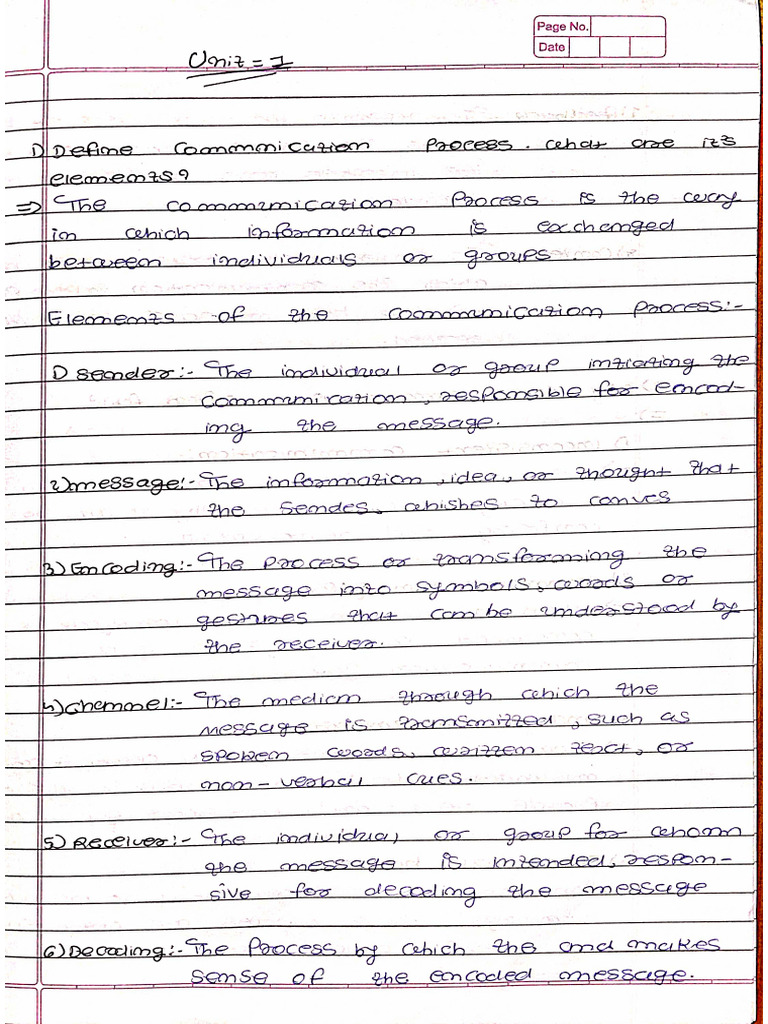 Page No.
Date
Unit = 1
1) Define Communication Process. what are its
elements?
⇒ The communication Process is the way
in which information is exchanged
between individuals or groups
Elements of the communication Process:-
1) sender:- The individual or group intiating the
communication, responsible for encod-
ing the message.
2) message:- The information, idea, or thought that
the sender, whishes to conves
3) Encoding:- The process or transforming the
message into symbols, words or
gestures that can be understood by
the receiver.
4) Channel:- The medium through which the
message is transmitted, such as
spoken words, written text, or
non-verbal cues.
5) Receiver:- The individual or group for whom
the message is intended, respon-
sive for decoding the message
6) Decoding:- The Process by which the and makes
sense of the encoded message.